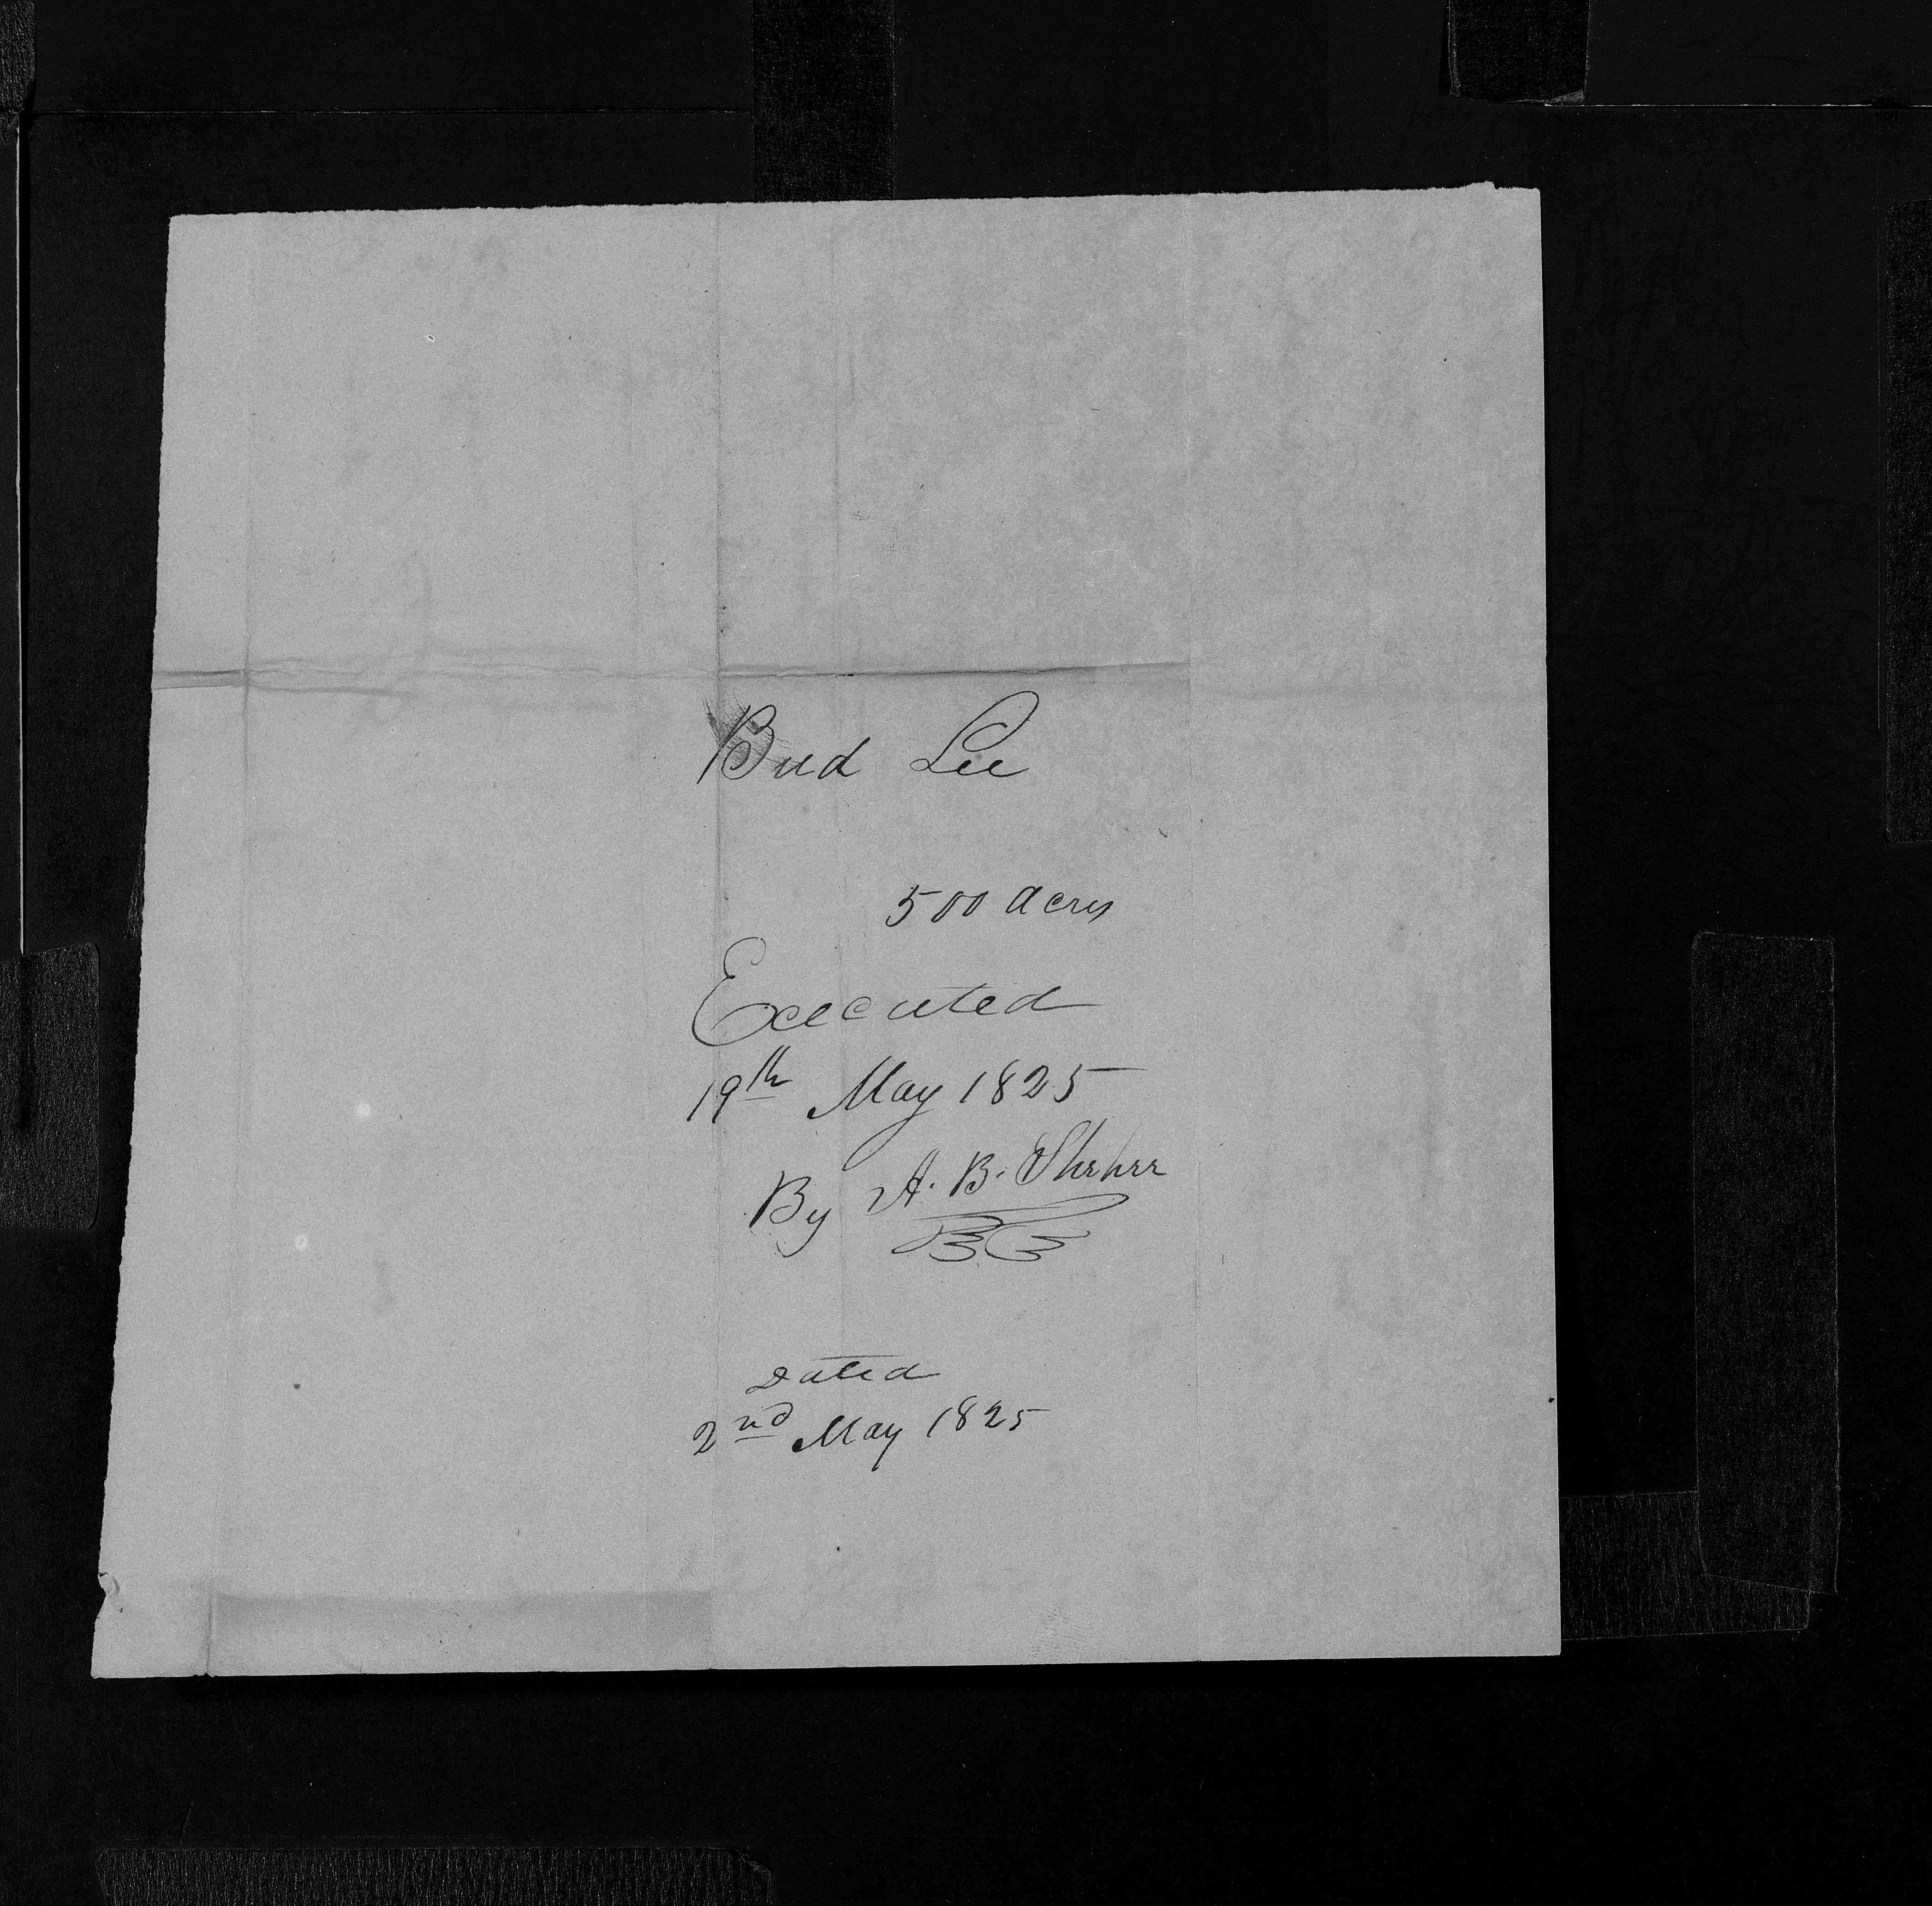 Bud Lee
500 acres
Executed
19th May 1825
By A. B. Shehee
Dated
2nd May 1825